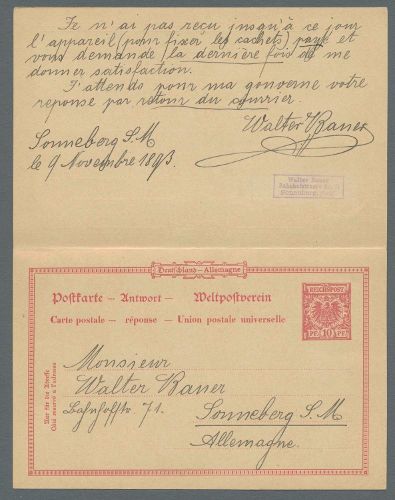 Je n'ai pas reçu jusqu'à ce jour
l'appareil (pour fixer les cachets) payé et
vous demande la dernière fois de me
donner satisfaction.
J'attends pour ma gouverne votre
reponse par retour du courrier.
Walter Bauer
Sonneberg S. M
le 9 Novembre 1893.
Walter Bauer
Deutschland - Allemagne
Postkarte - Antwort - Weltpostverein
Carte postale - réponse - Union postale universelle
REICHSPOST
PF. 10 PF.
Nur für die Adresse
Côté réservé à l'adresse
Monsieur
Walter Bauer
Bahnhofstr. 71.
Sonneberg S. M
Allemagne.